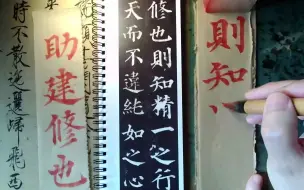 則知
修也則知精一之行
天而不違純如之心
助建修也
時不散歸飛馬